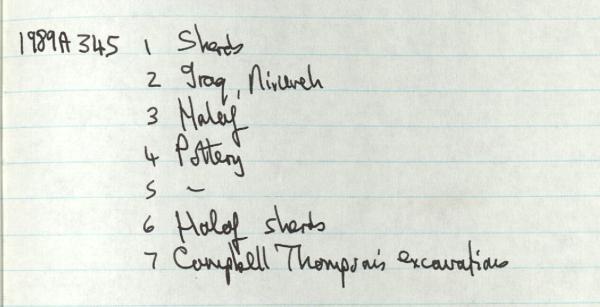 1989A345 1 Sherds
2 Iraq, Nineveh
3 Halaf
4 Pottery
5 –
6 Halaf sherds
7 Campbell Thompson's excavations